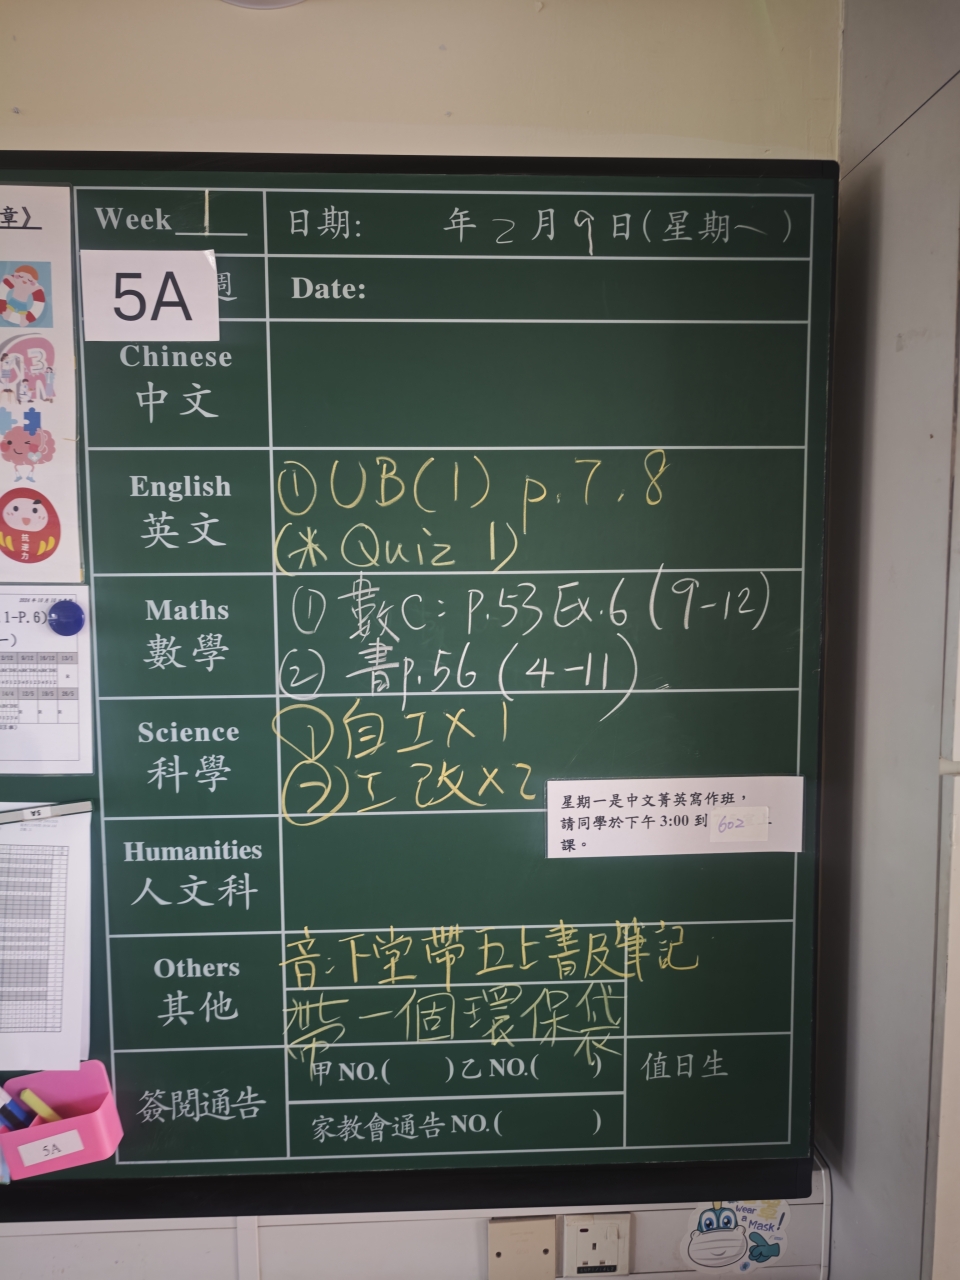 章》
Week 1
日期: 年 2 月 9 日(星期一)
5A
週
Date:
Chinese
中文
English
英文
① UB(1) p.7,8
(* Quiz 1)
Maths
數學
① 數C: P.53 Ex.6 (9-12)
② 書p.56 (4-11)
Science
科學
① 自工X1
② 工改X2
星期一是中文菁英寫作班，
請同學於下午 3:00 到 602
課。
Humanities
人文科
Others
其他
音:下堂帶五上書及筆記
帶一個環保袋
簽閱通告
甲 NO.( ) 乙 NO.( )
家教會通告 NO.( )
值日生
抗逆力
1-P.6)
5A
5A
Wear
a
Mask!